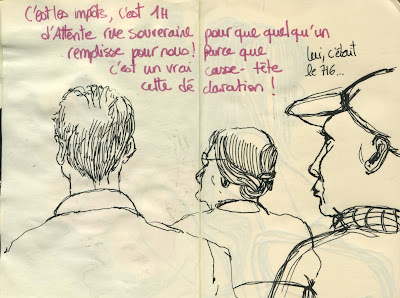 C'est les impôts, c'est 1H
d'Attente rue souveraine pour que quelqu'un
remplisse pour nous ! Parce que
c'est un vrai casse-tête
cette déclaration !
Lui, c'était
le 716...